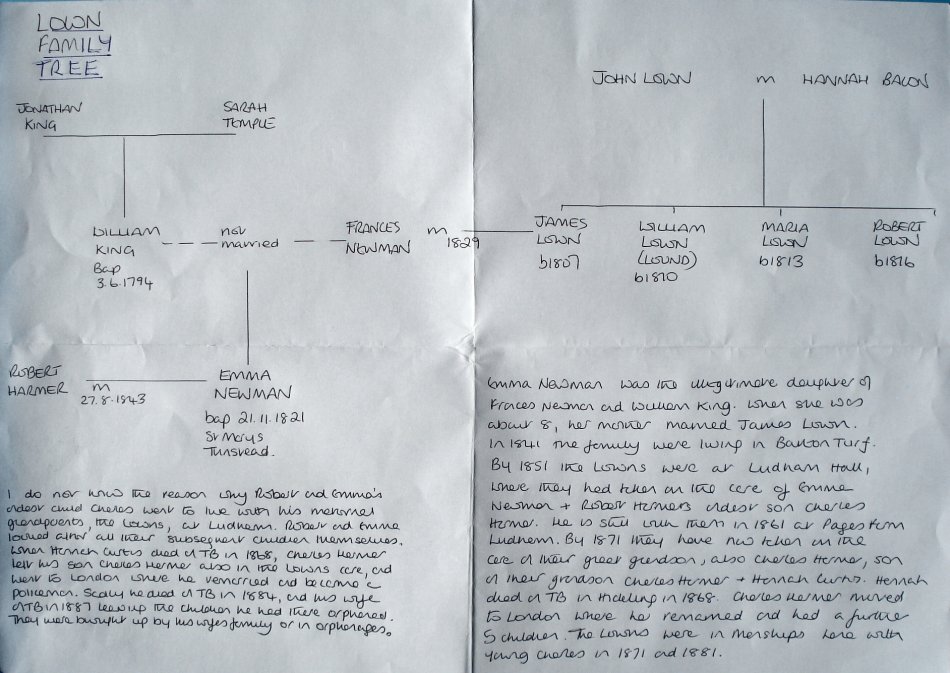 LOWN
FAMILY
TREE
JOHN LOWN m HANNAH BACON
JONATHAN
KING
SARAH
TEMPLE
WILLIAM
KING
Bap
3.6.1794
not
married
FRANCES
NEWMAN
m
1829
JAMES
LOWN
b1807
WILLIAM
LOWN
(LOUND)
b1810
MARIA
LOWN
b1813
ROBERT
LOWN
b1816
ROBERT
HARMER
m
27.8.1843
EMMA
NEWMAN
bap 21.11.1821
St Marys
Tunstead.
I do not know the reason why Robert and Emma's
oldest child Charles went to live with his maternal
grandparents, the Lowns, at Ludham. Robert and Emma
looked after all their subsequent children themselves.
When Hannah Curtis died of TB in 1868, Charles Harmer
left his son Charles Harmer also in the Lowns care, and
went to London where he remarried and became a
policeman. Sadly he died of TB in 1884, and his wife
of TB in 1887 leaving the children he had there orphaned.
They were brought up by his wifes family or in orphanages.
Emma Newman was the illegitimate daughter of
Frances Newman and William King. When she was
about 8, her mother married James Lown.
In 1841 the family were living in Barton Turf.
By 1851 the Lowns were at Ludham Hall,
where they had taken on the care of Emma
Newman + Robert Harmers oldest son Charles
Harmer. He is still with them in 1861 at Pages Farm
Ludham. By 1871 they have now taken on the
care of their great grandson, also Charles Harmer, son
of their grandson Charles Harmer + Hannah Curtis. Hannah
died of TB in Hickling in 1868. Charles Harmer moved
to London where he remarried and had a further
5 children. The Lowns were in here with
young Charles in 1871 and 1881.